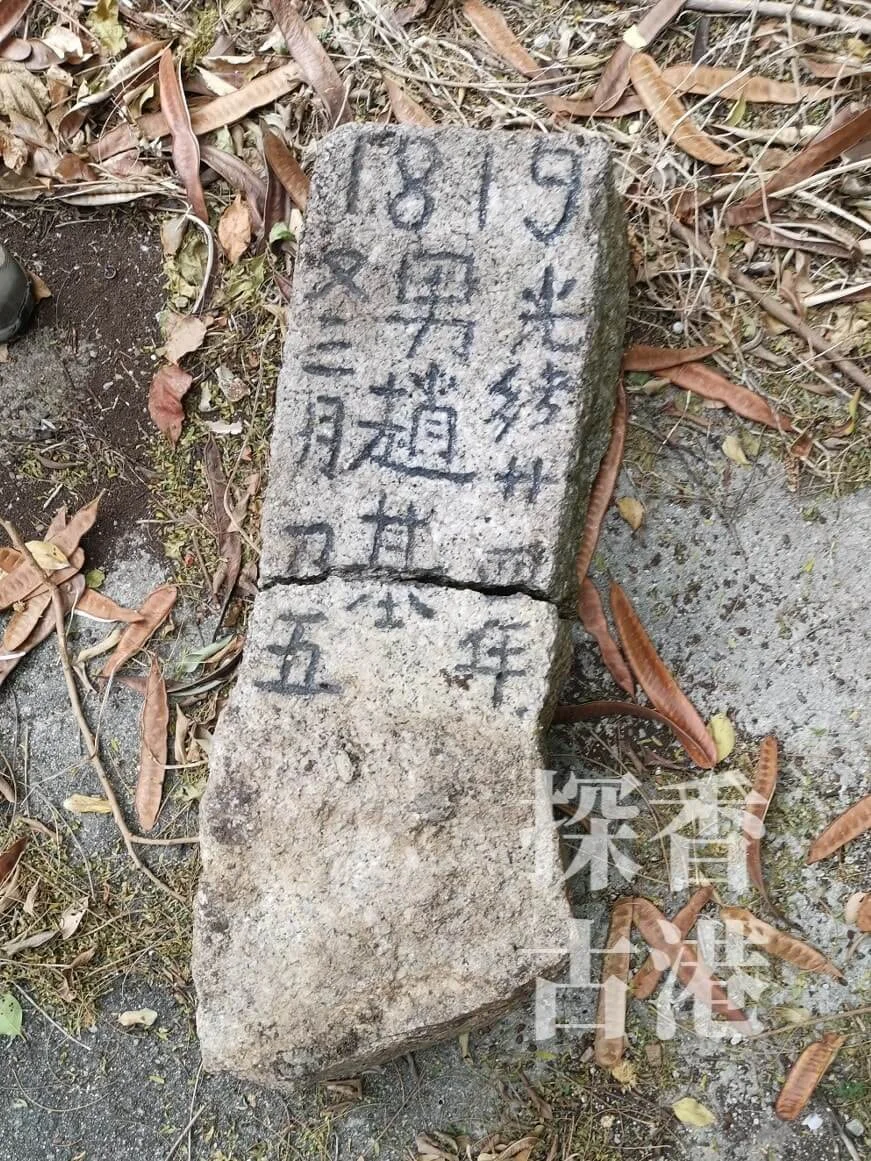 1819
光緒廿四年
男趙基
又三月五
香港
探古